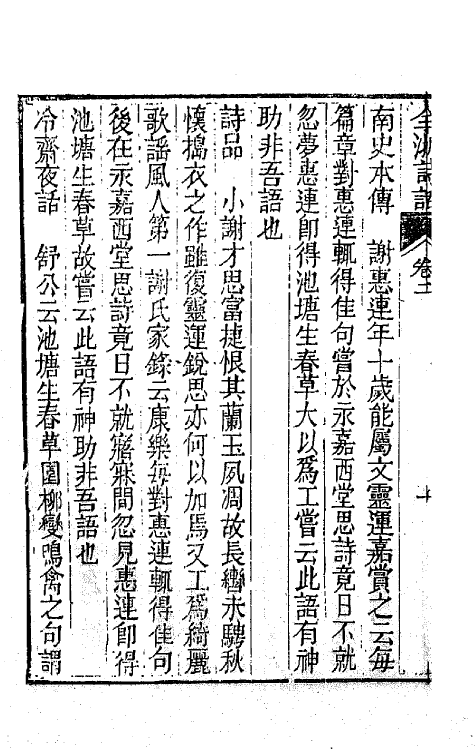 全浙詩話 卷二 十
南史本傳 謝惠連年十歲能屬文靈運嘉賞之云每
篇章對惠連輒得佳句嘗於永嘉西堂思詩竟日不就
忽夢惠連卽得池塘生春草大以爲工嘗云此語有神
助非吾語也
詩品 小謝才思富捷恨其蘭玉夙凋故長轡未騁秋
懷搗衣之作雖復靈運銳思亦何以加焉又工爲綺麗
歌謠風人第一謝氏家錄云康樂每對惠連輒得佳句
後在永嘉西堂思詩竟日不就寤寐間忽見惠連卽得
池塘生春草故嘗云此語有神助非吾語也
冷齋夜話 舒公云池塘生春草園柳變鳴禽之句謂